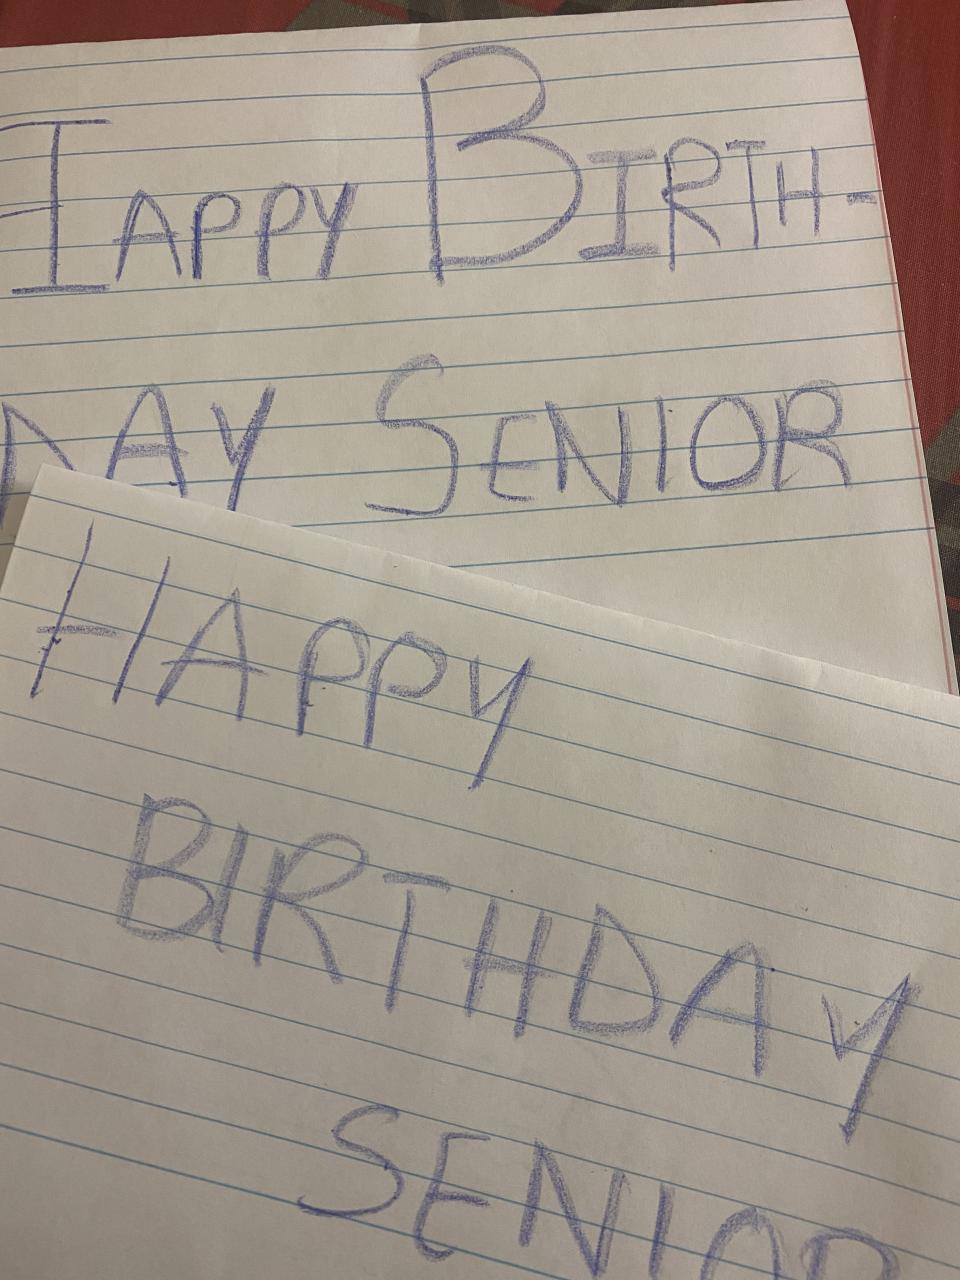 HAPPY BIRTH-
DAY SENIOR
HAPPY
BIRTHDAY
SENIOR